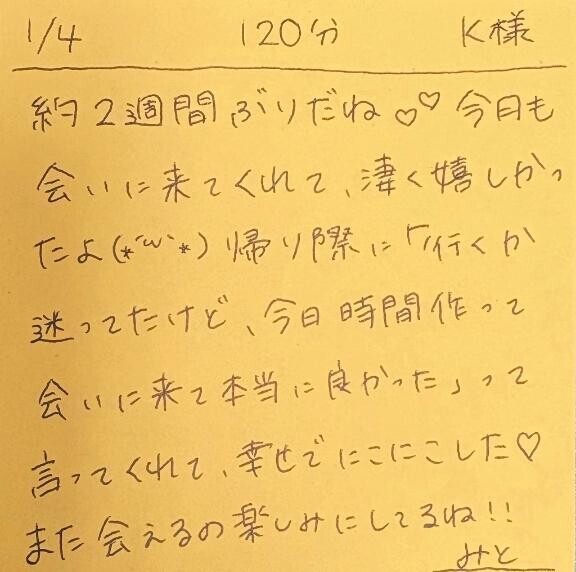 1/4 120分 K様
約2週間ぶりだね♡♡今日も
会いに来てくれて、凄く嬉しかっ
たよ(*´ω`*)帰り際に「行くか
迷ってたけど、今日時間作って
会いに来て本当に良かった」って
言ってくれて、幸せでにこにこした♡
また会えるの楽しみにしてるね!!
みと